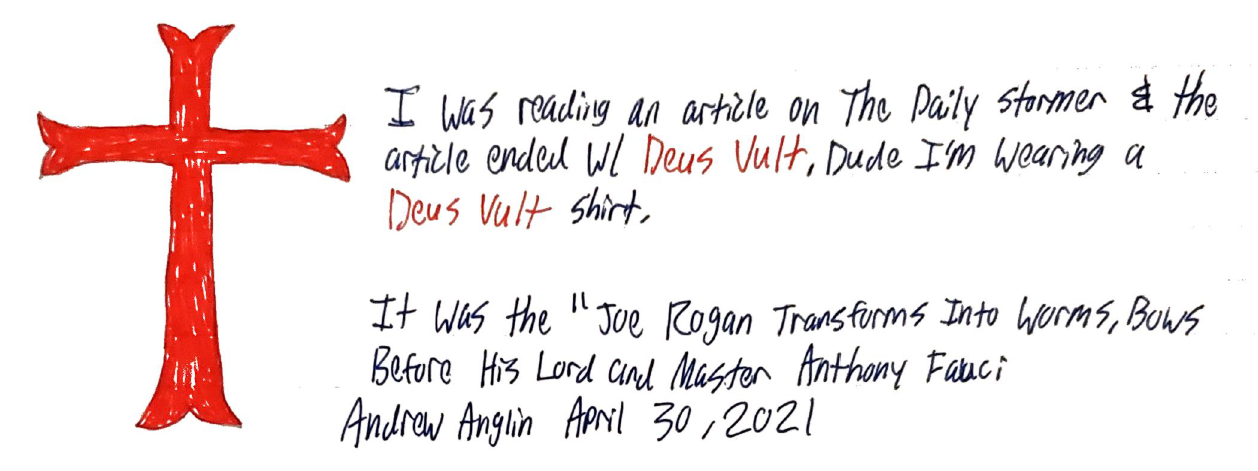 I was reading an article on The Daily stormer & the
article ended w/ Deus Vult, Dude I'm wearing a
Deus Vult shirt.
It was the "Joe Rogan Transforms Into Worms, Bows
Before His Lord and Master Anthony Fauci
Andrew Anglin April 30, 2021